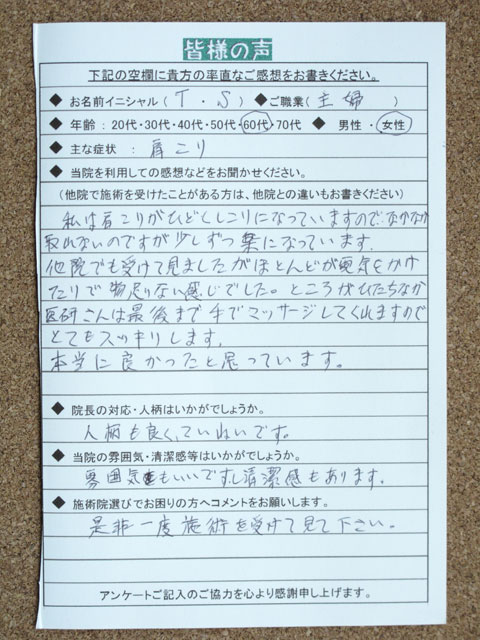 皆様の声
下記の空欄に貴方の率直なご感想をお書きください。
◆ お名前イニシャル ( T ・ S ) ◆ご職業 ( 主婦 )
◆ 年齢：20代・30代・40代・50代・60代・70代 ◆ 男性 ・ 女性
◆ 主な症状 ： 肩こり
◆ 当院を利用しての感想などをお聞かせください。
(他院で施術を受けたことがある方は、他院との違いもお書きください)
私は肩こりがひどくしこりになっていますので、なかなか
取れないのですが少しずつ楽になっています。
他院でも受けて見ましたがほとんどが電気をかけ
たりで物足りない感じでした。ところがひたちなか
医研さんは最後まで手でマッサージしてくれますので
とてもスッキリします。
本当に良かったと思っています。
◆ 院長の対応・人柄はいかがでしょうか。
人柄も良く、ていねいです。
◆ 当院の雰囲気・清潔感等はいかがでしょうか。
雰囲気もいいですし清潔感もあります。
◆ 施術院選びでお困りの方へコメントをお願いします。
是非一度施術を受けて見て下さい。
アンケートご記入のご協力を心より感謝申し上げます。